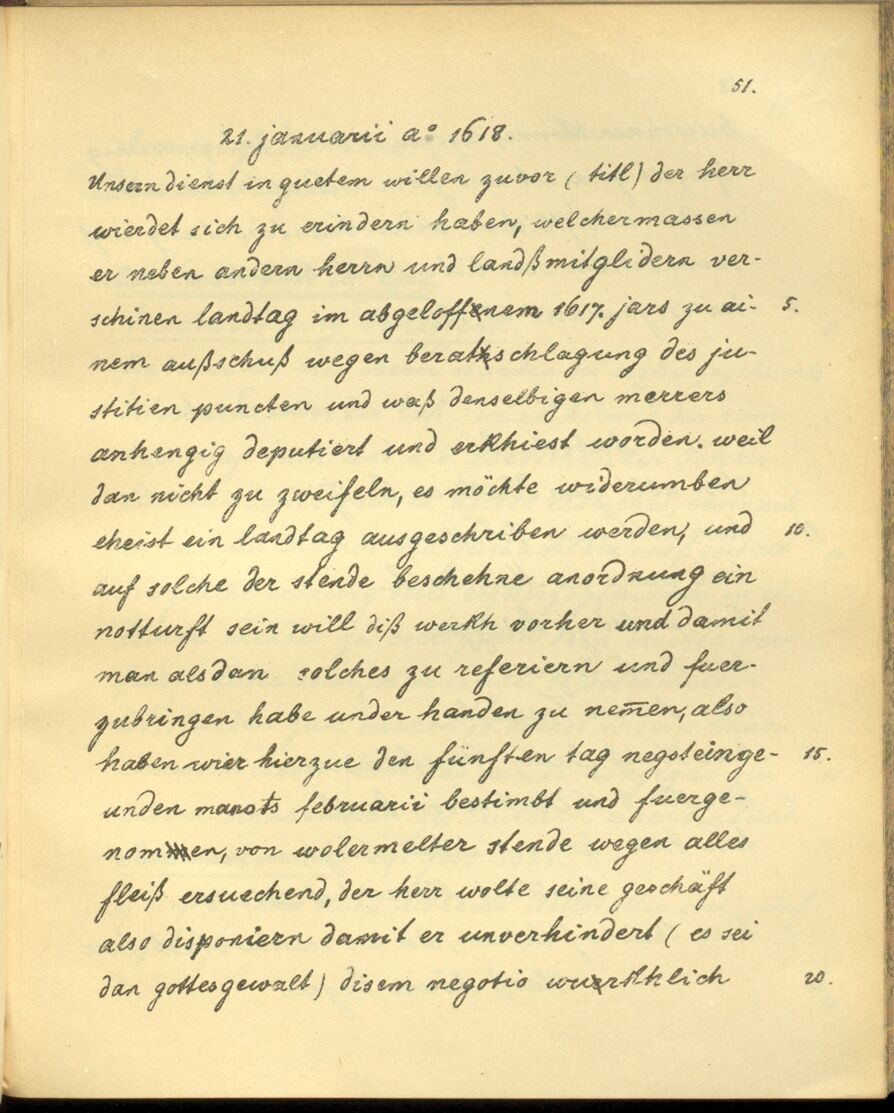 51.
21. januarii a° 1618.
Unsern dienst in guetem willen zuvor (titl) der herr
wierdet sich zu erindern haben, welchermassen
er neben andern herrn und landßmitglidern ver-
schinen landtag im abgeloffenem 1617. jars zu ai- 5.
nem außschuß wegen beratschlagung des ju-
stitien puncten und waß denselbigen merrers
anhengig deputiert und erkhiest worden. weil
dan nicht zu zweifeln, es möchte widerumben
eheist ein landtag ausgeschriben werden, und 10.
auf solche der stende beschehne anordnung ein
notturft sein will diß werkh vorher und damit
man alsdan solches zu referiern und fuer-
zubringen habe under handen zu nem̅en, also
haben wier hierzue den fünften tag negsteinge- 15.
unden manots februarii bestimbt und fuerge-
nommen, von wolermelter stende wegen alles
fleiß ersuechend, der herr wolte seine geschäft
also disponiern damit er unverhindert (es sei
dan gottesgewalt) disem negotio wuerkhlich 20.